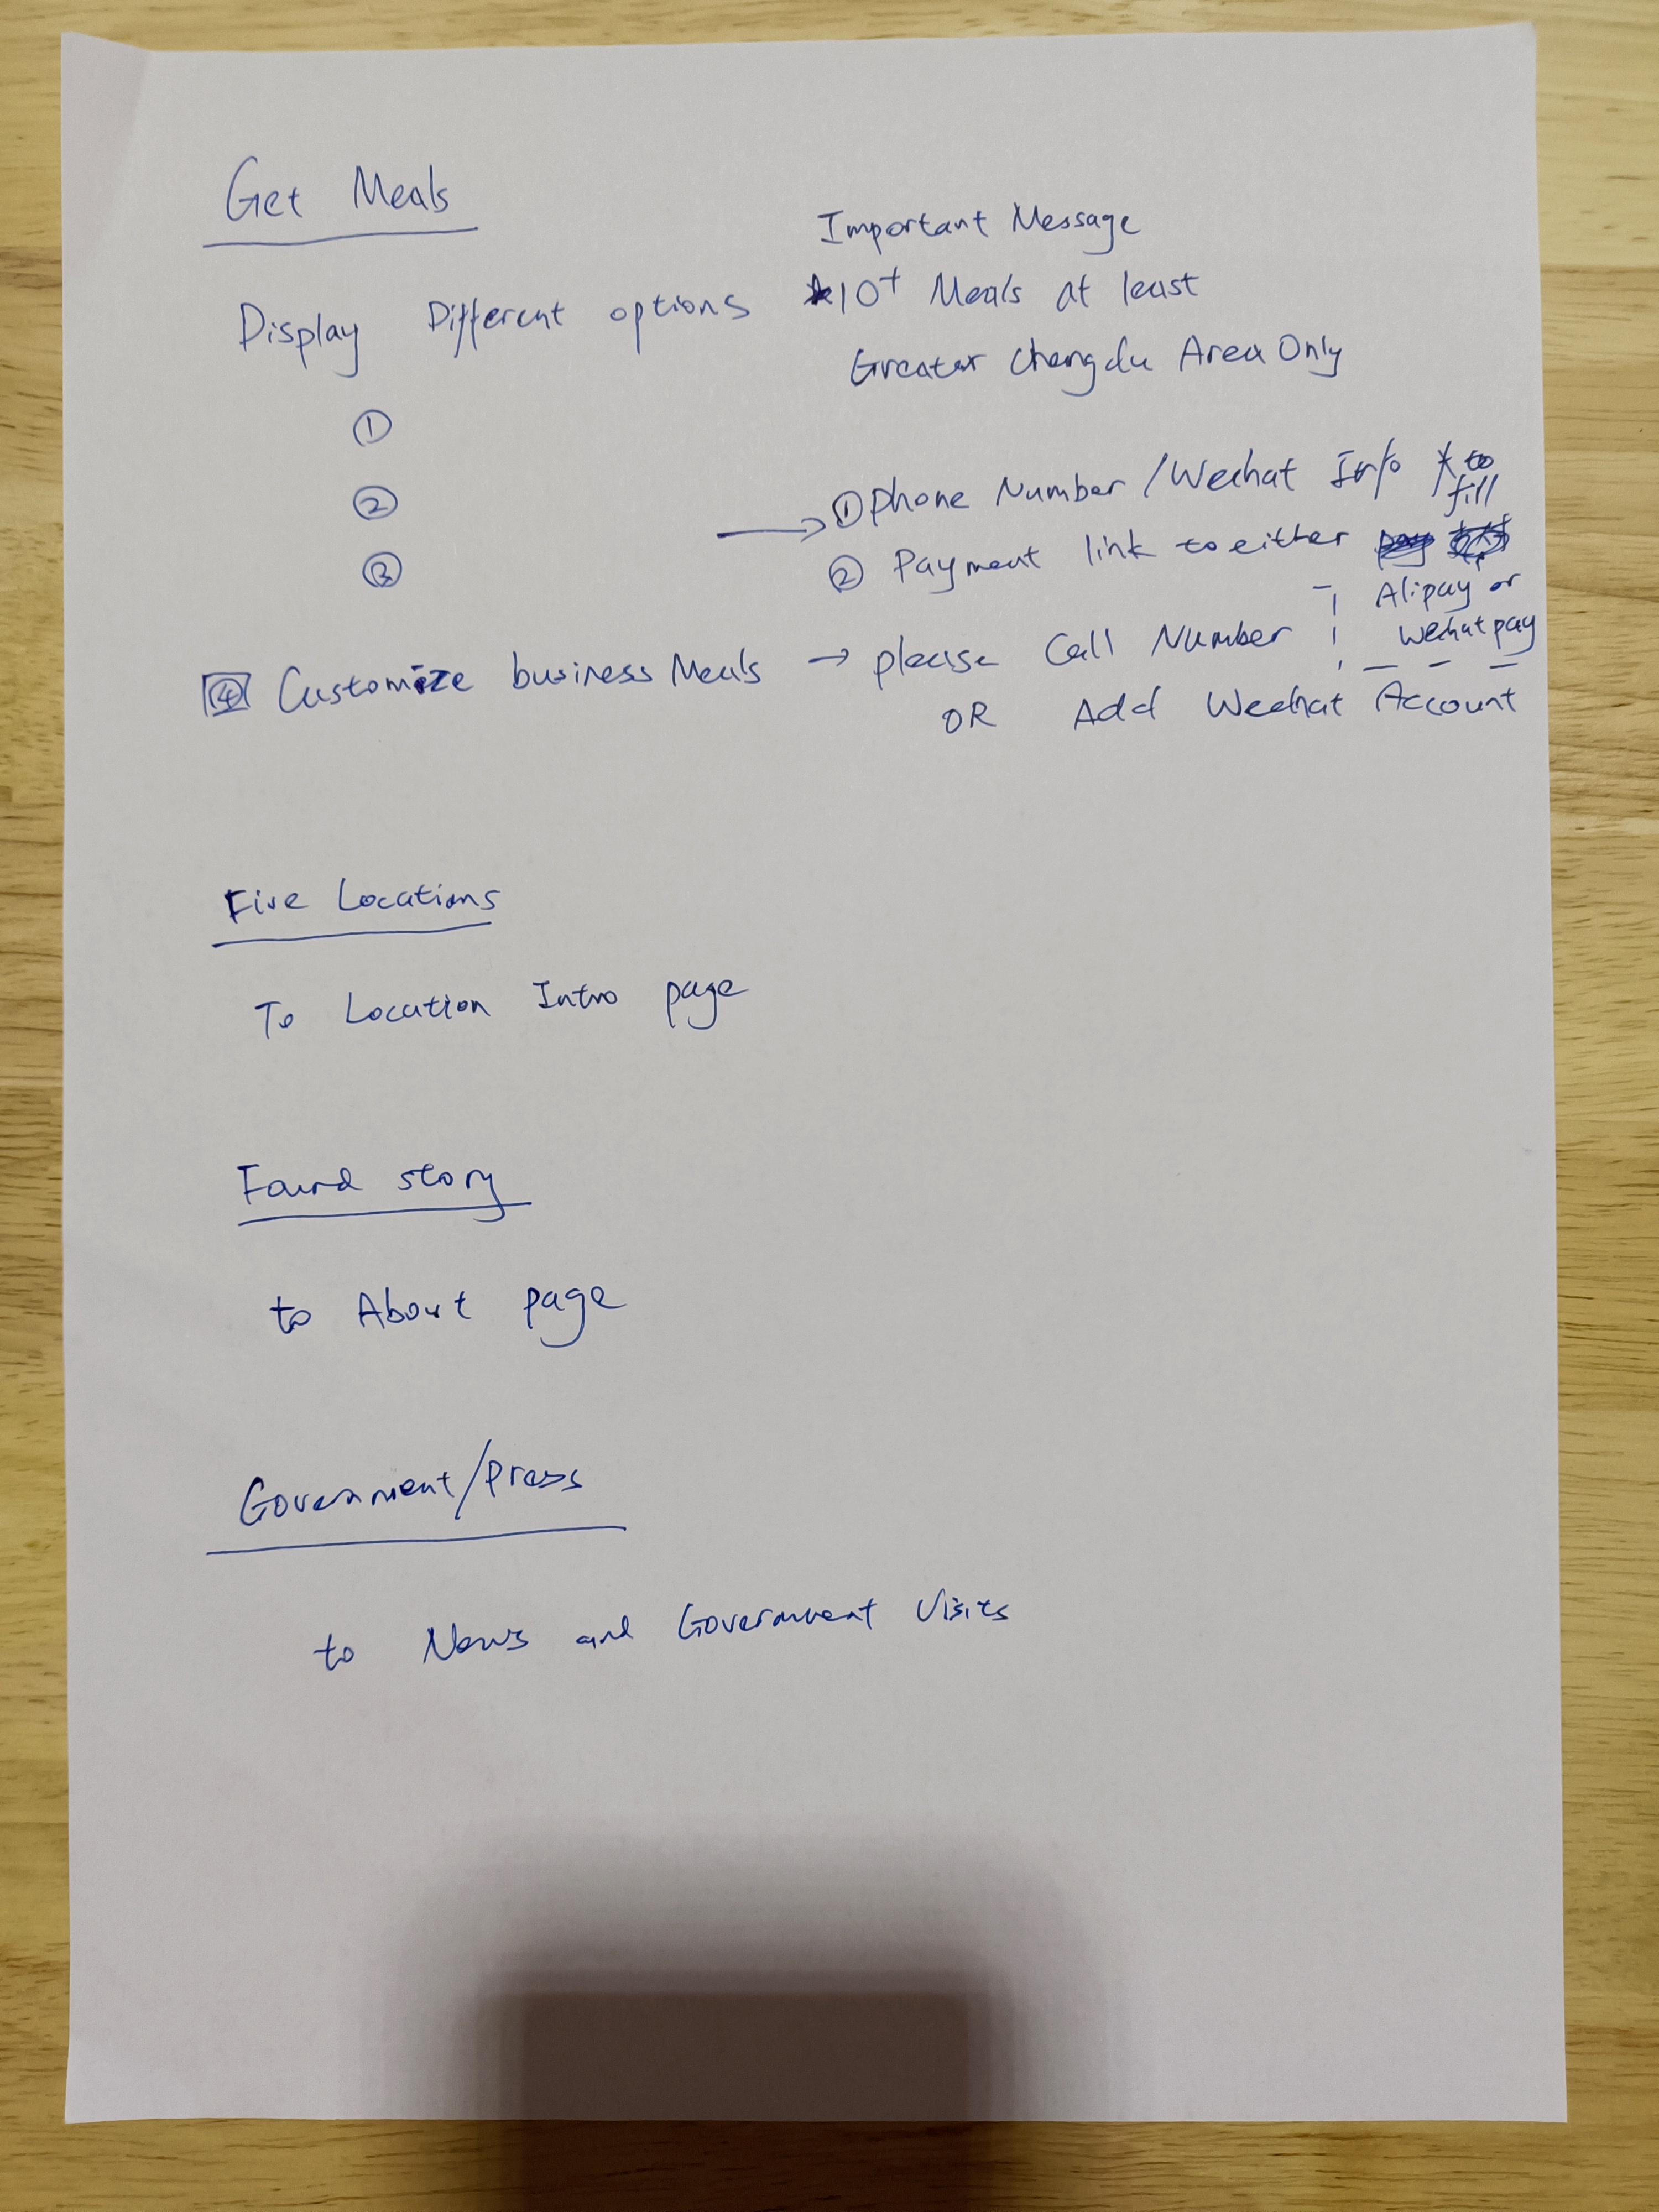 Get Meals
Important Message
Display Different options
*10+ Meals at least
Greater Chengdu Area Only
①
②
③
① Phone Number /Wechat Info * to
fill
② Payment link to either
Alipay or
Wechat pay
④ Customize business Meals → please Call Number
OR Add Wechat Account
Five Locations
To Location Intro page
Found story
to About page
Government/Press
to News and Government Visits